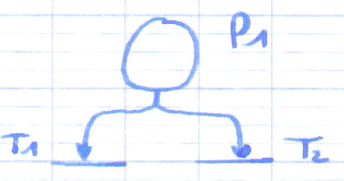 P1
T1 T2